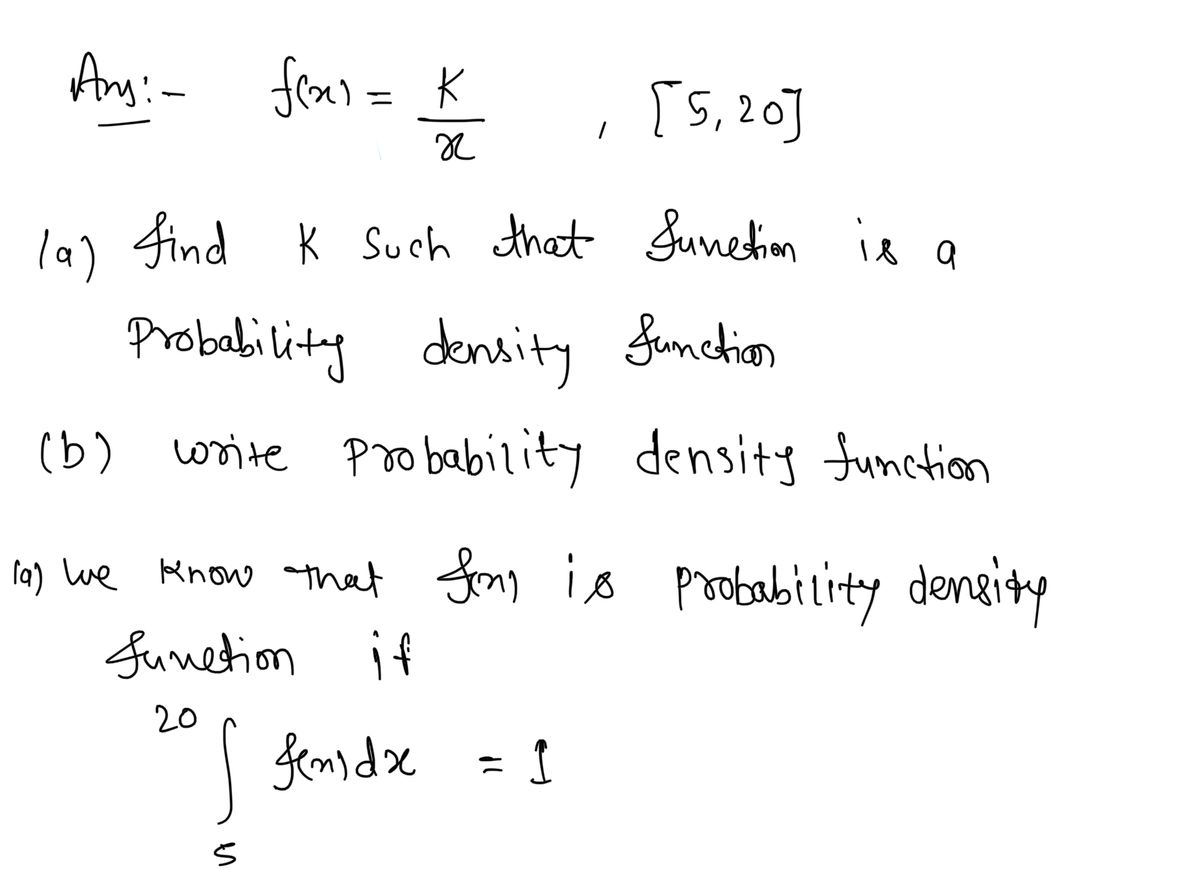 Ans:- f(x) = K/x , [5,20]
(a) find K such that function is a
Probability density function
(b) write probability density function
(a) we know that f(x) is probability density
function if
20
∫ f(x)dx = 1
5